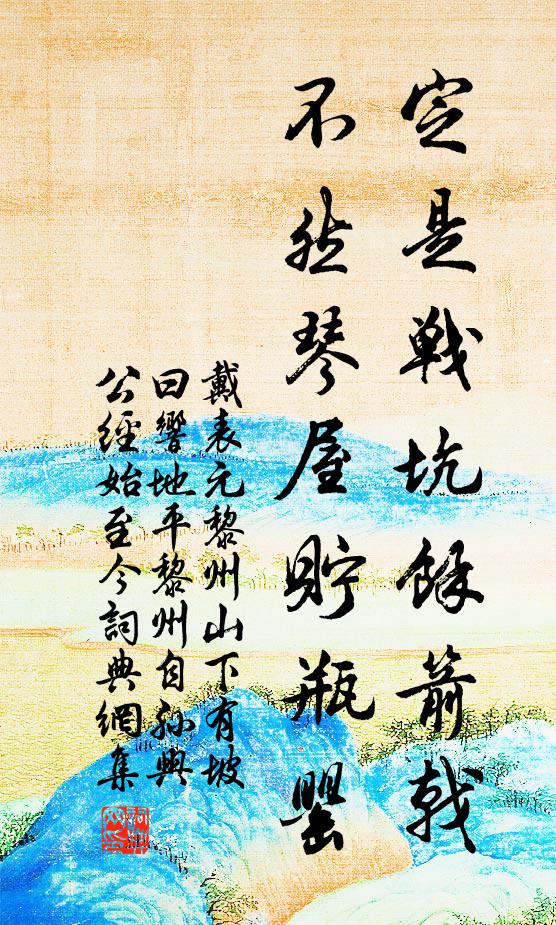 定是戦坑餘箭戟
不然琴屋貯瓶罌
戴表元黎州山下有坡
曰響地平黎州自孫興
公經始至今詞典網集